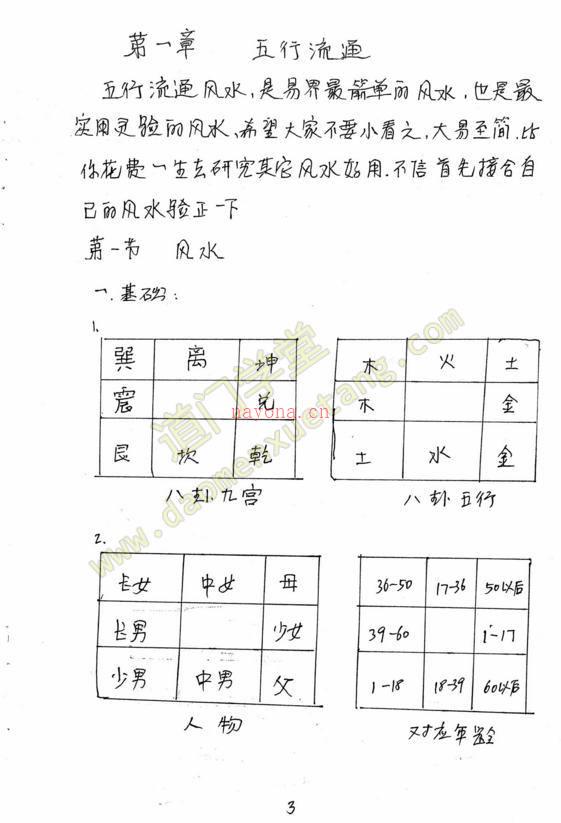 第一章 五行流通
五行流通风水,是易界最简单的风水,也是最
实用灵验的风水、希望大家不要小看之,大易至简,比
你花费一生去研究其它风水好用.不信首先接合自
己的风水验正一下
第一节 风水
一.基础:
1.
巽 离 坤
震 兑
艮 坎 乾
八卦九宫
木 火 土
木 金
土 水 金
八卦五行
2.
长女 中女 母
长男 少女
少男 中男 父
人物
36-50 17-36 50以后
39-60 1-17
1-18 18-39 60以后
对应年龄
3
道门学堂
www.daomenxuetang.com
nayona.cn